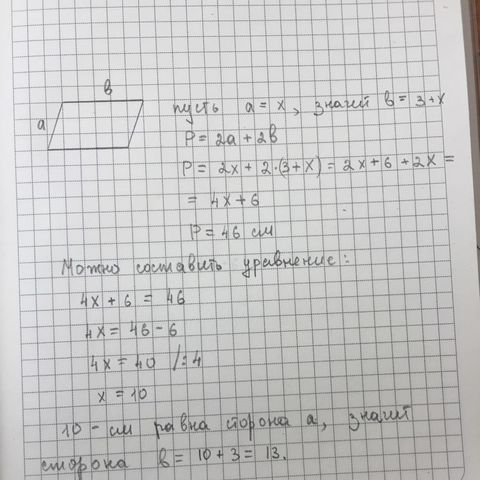 в
a
пусть a = x, значит в = 3+x
P = 2a + 2в
P = 2x + 2·(3+x) = 2x + 6 + 2x =
= 4x + 6
P = 46 см
Можно составить уравнение:
4x + 6 = 46
4x = 46 - 6
4x = 40 /:4
x = 10
10 - см равна сторона a, значит
сторона в = 10 + 3 = 13.